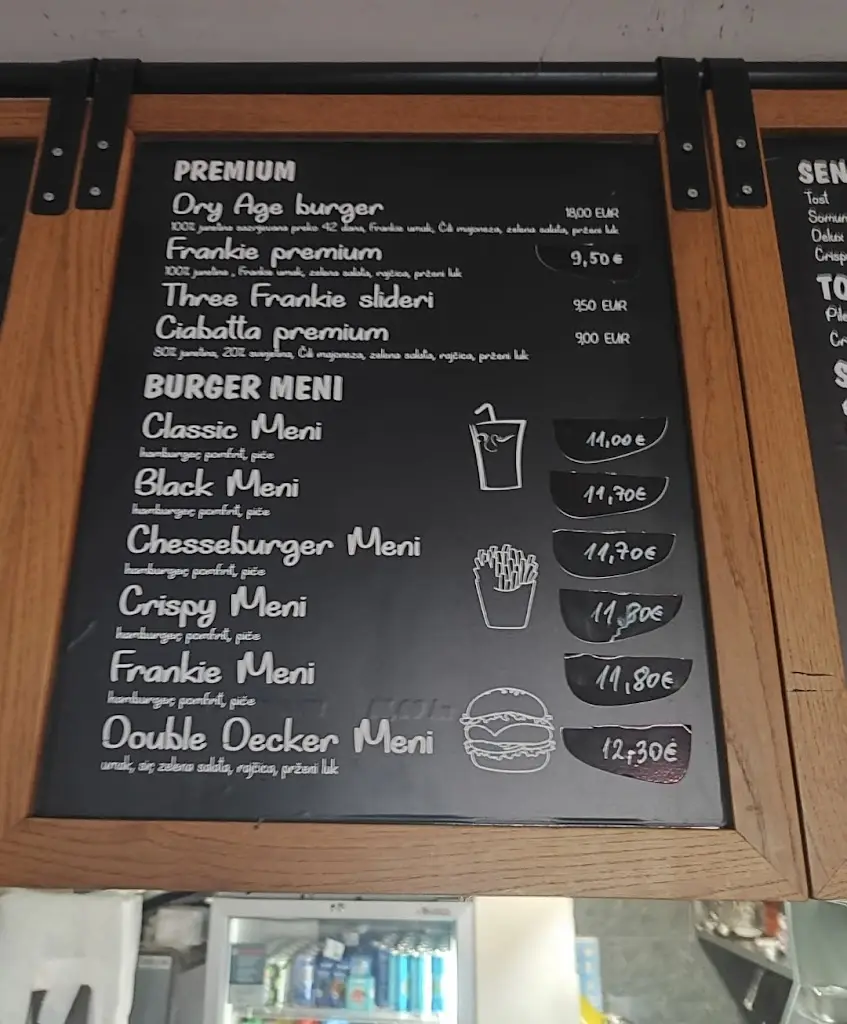 PREMIUM
Dry Age burger 18,00 EUR
100% junetina sazrijevana preko 42 dana, Frankie umak, Čili majoneza, zelena salata, prženi luk
Frankie premium 9,50€
100% junetina , Frankie umak, zelena salata, rajčica, prženi luk
Three Frankie slideri 9,50 EUR
Ciabatta premium 9,00 EUR
80% junetina, 20% svinjetina, Čili majoneza, zelena salata, rajčica, prženi luk
BURGER MENI
Classic Meni 11,00€
hamburger, pomfrit, piće
Black Meni 11,70€
hamburger, pomfrit, piće
Chesseburger Meni 11,70€
hamburger, pomfrit, piće
Crispy Meni 11,80€
hamburger, pomfrit, piće
Frankie Meni 11,80€
hamburger, pomfrit, piće
Double Decker Meni 12,30€
umak, sir, zelena salata, rajčica, prženi luk
SEN
Tost
Delux
Crisp
TO